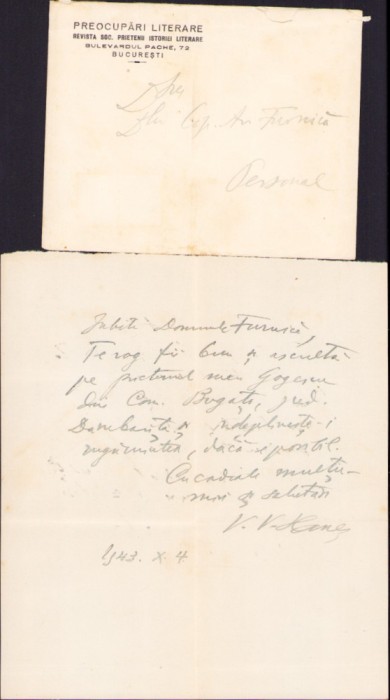 PREOCUPĂRI LITERARE
REVISTA SOC. PRIETENII ISTORIEI LITERARE
BULEVARDUL PACHE, 72
BUCUREȘTI
Dlui Furnică
Personal
Iubite Domnule Furnică,
Te rog fii bun și ascultă
pe prietenul meu Gogescu
din Com. Bugați, jud.
Dâmbovița și îndeplinește-i
rugămintea, dacă-i posibil.
Cu cordiale mulțu-
miri și salutări
V. V. Haneș
1943. X. 4